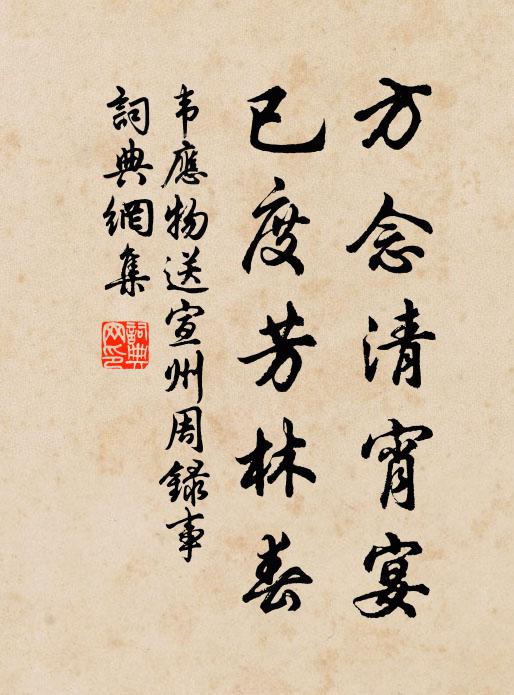 方念清宵宴
已度芳林春
韦應物送宣州周録事
詞典網集
詞典网印